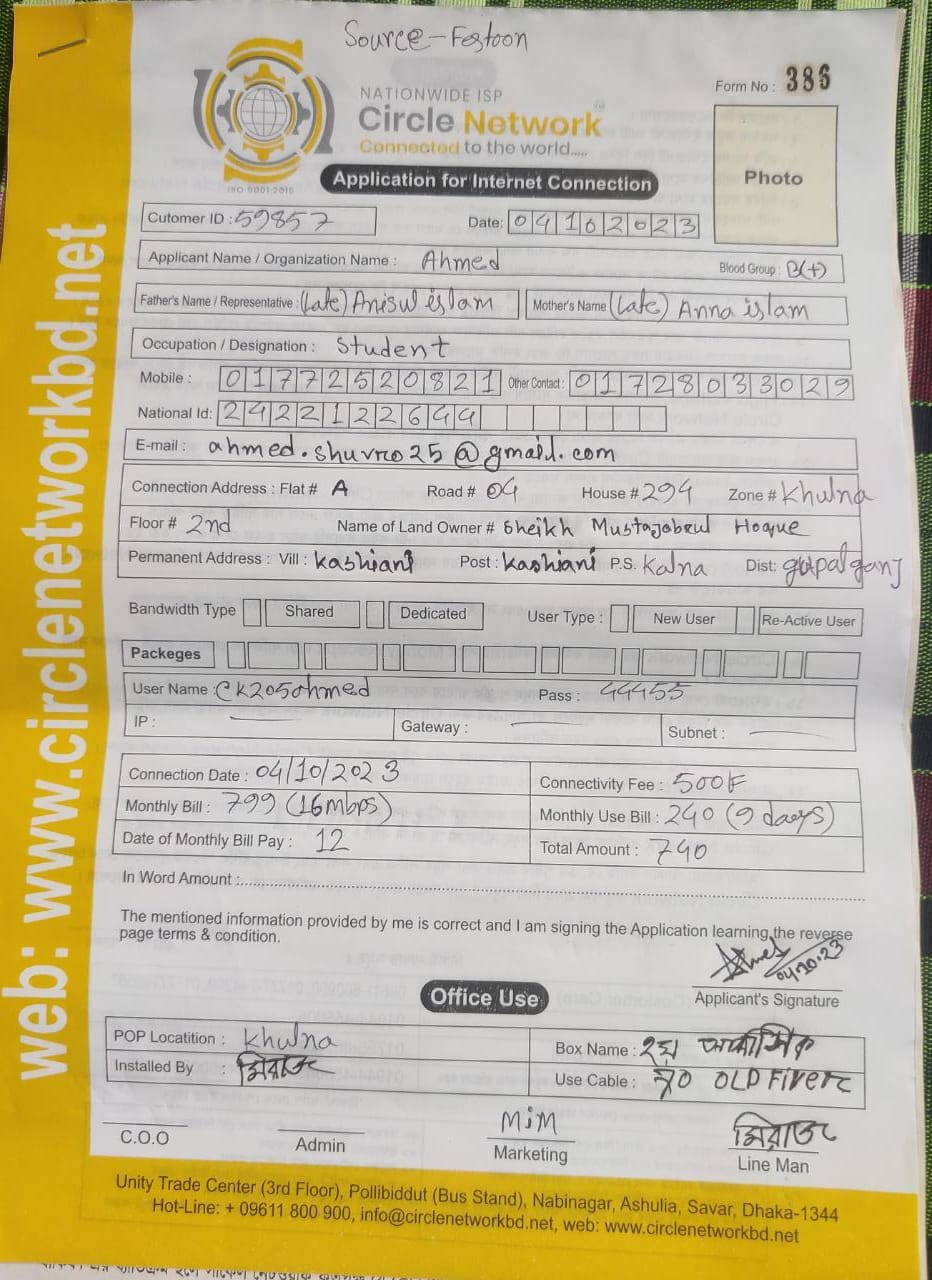 Source - Festoon
Form No : 386
NATIONWIDE ISP
Circle Network
Connected to the world.....
ISO 9001:2015
Application for Internet Connection
Photo
Cutomer ID : 59857
Date: 04102023
Applicant Name / Organization Name : Ahmed
Blood Group : B(+)
Father's Name / Representative : (Late) Anisul islam
Mother's Name (Late) Anna islam
Occupation / Designation : Student
Mobile : 01772520821 Other Contact : 01728033029
National Id: 2422122644
E-mail : ahmed.shuvro25@gmail.com
Connection Address : Flat # A Road # 04 House # 294 Zone # Khulna
Floor # 2nd Name of Land Owner # Sheikh Mustajabeul Hoque
Permanent Address : Vill : Kashiani Post : Kashiani P.S. Kalna Dist: gopalganj
Bandwidth Type Shared Dedicated User Type : New User Re-Active User
Packeges
User Name : CK205ahmed Pass : 44455
IP : Gateway : Subnet :
Connection Date : 04/10/2023 Connectivity Fee : 500৳
Monthly Bill : 799 (16mbps) Monthly Use Bill : 240 (9 days)
Date of Monthly Bill Pay : 12 Total Amount : 740
In Word Amount :
The mentioned information provided by me is correct and I am signing the Application learning,the reverse
page terms & condition.
Ahmed
04.10.23
Applicant's Signature
Office Use
POP Locatition : Khulna Box Name : ২য়
Installed By : মিরাজ Use Cable : OLD Fiver
C.O.O Admin MiM Marketing মিরাজ Line Man
Unity Trade Center (3rd Floor), Pollibiddut (Bus Stand), Nabinagar, Ashulia, Savar, Dhaka-1344
Hot-Line: + 09611 800 900, info@circlenetworkbd.net, web: www.circlenetworkbd.net
web: www.circlenetworkbd.net